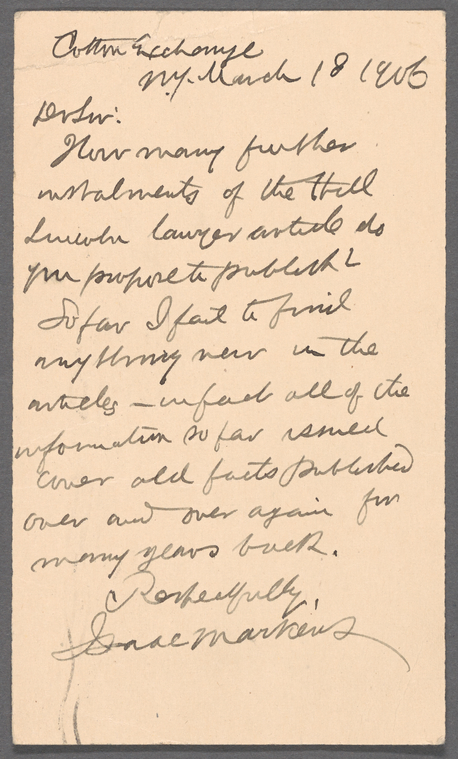 Cotton Exchange
N.Y. March 18 1906
Dr Sir:
How many further
instalments of the Hill
Lincoln lawyer article do
you propose to publish?
So far I fail to find
anything new in the
articles - in fact all of the
information so far issued
cover old facts published
over and over again for
many years back.
Respectfully,
Isaac Markens